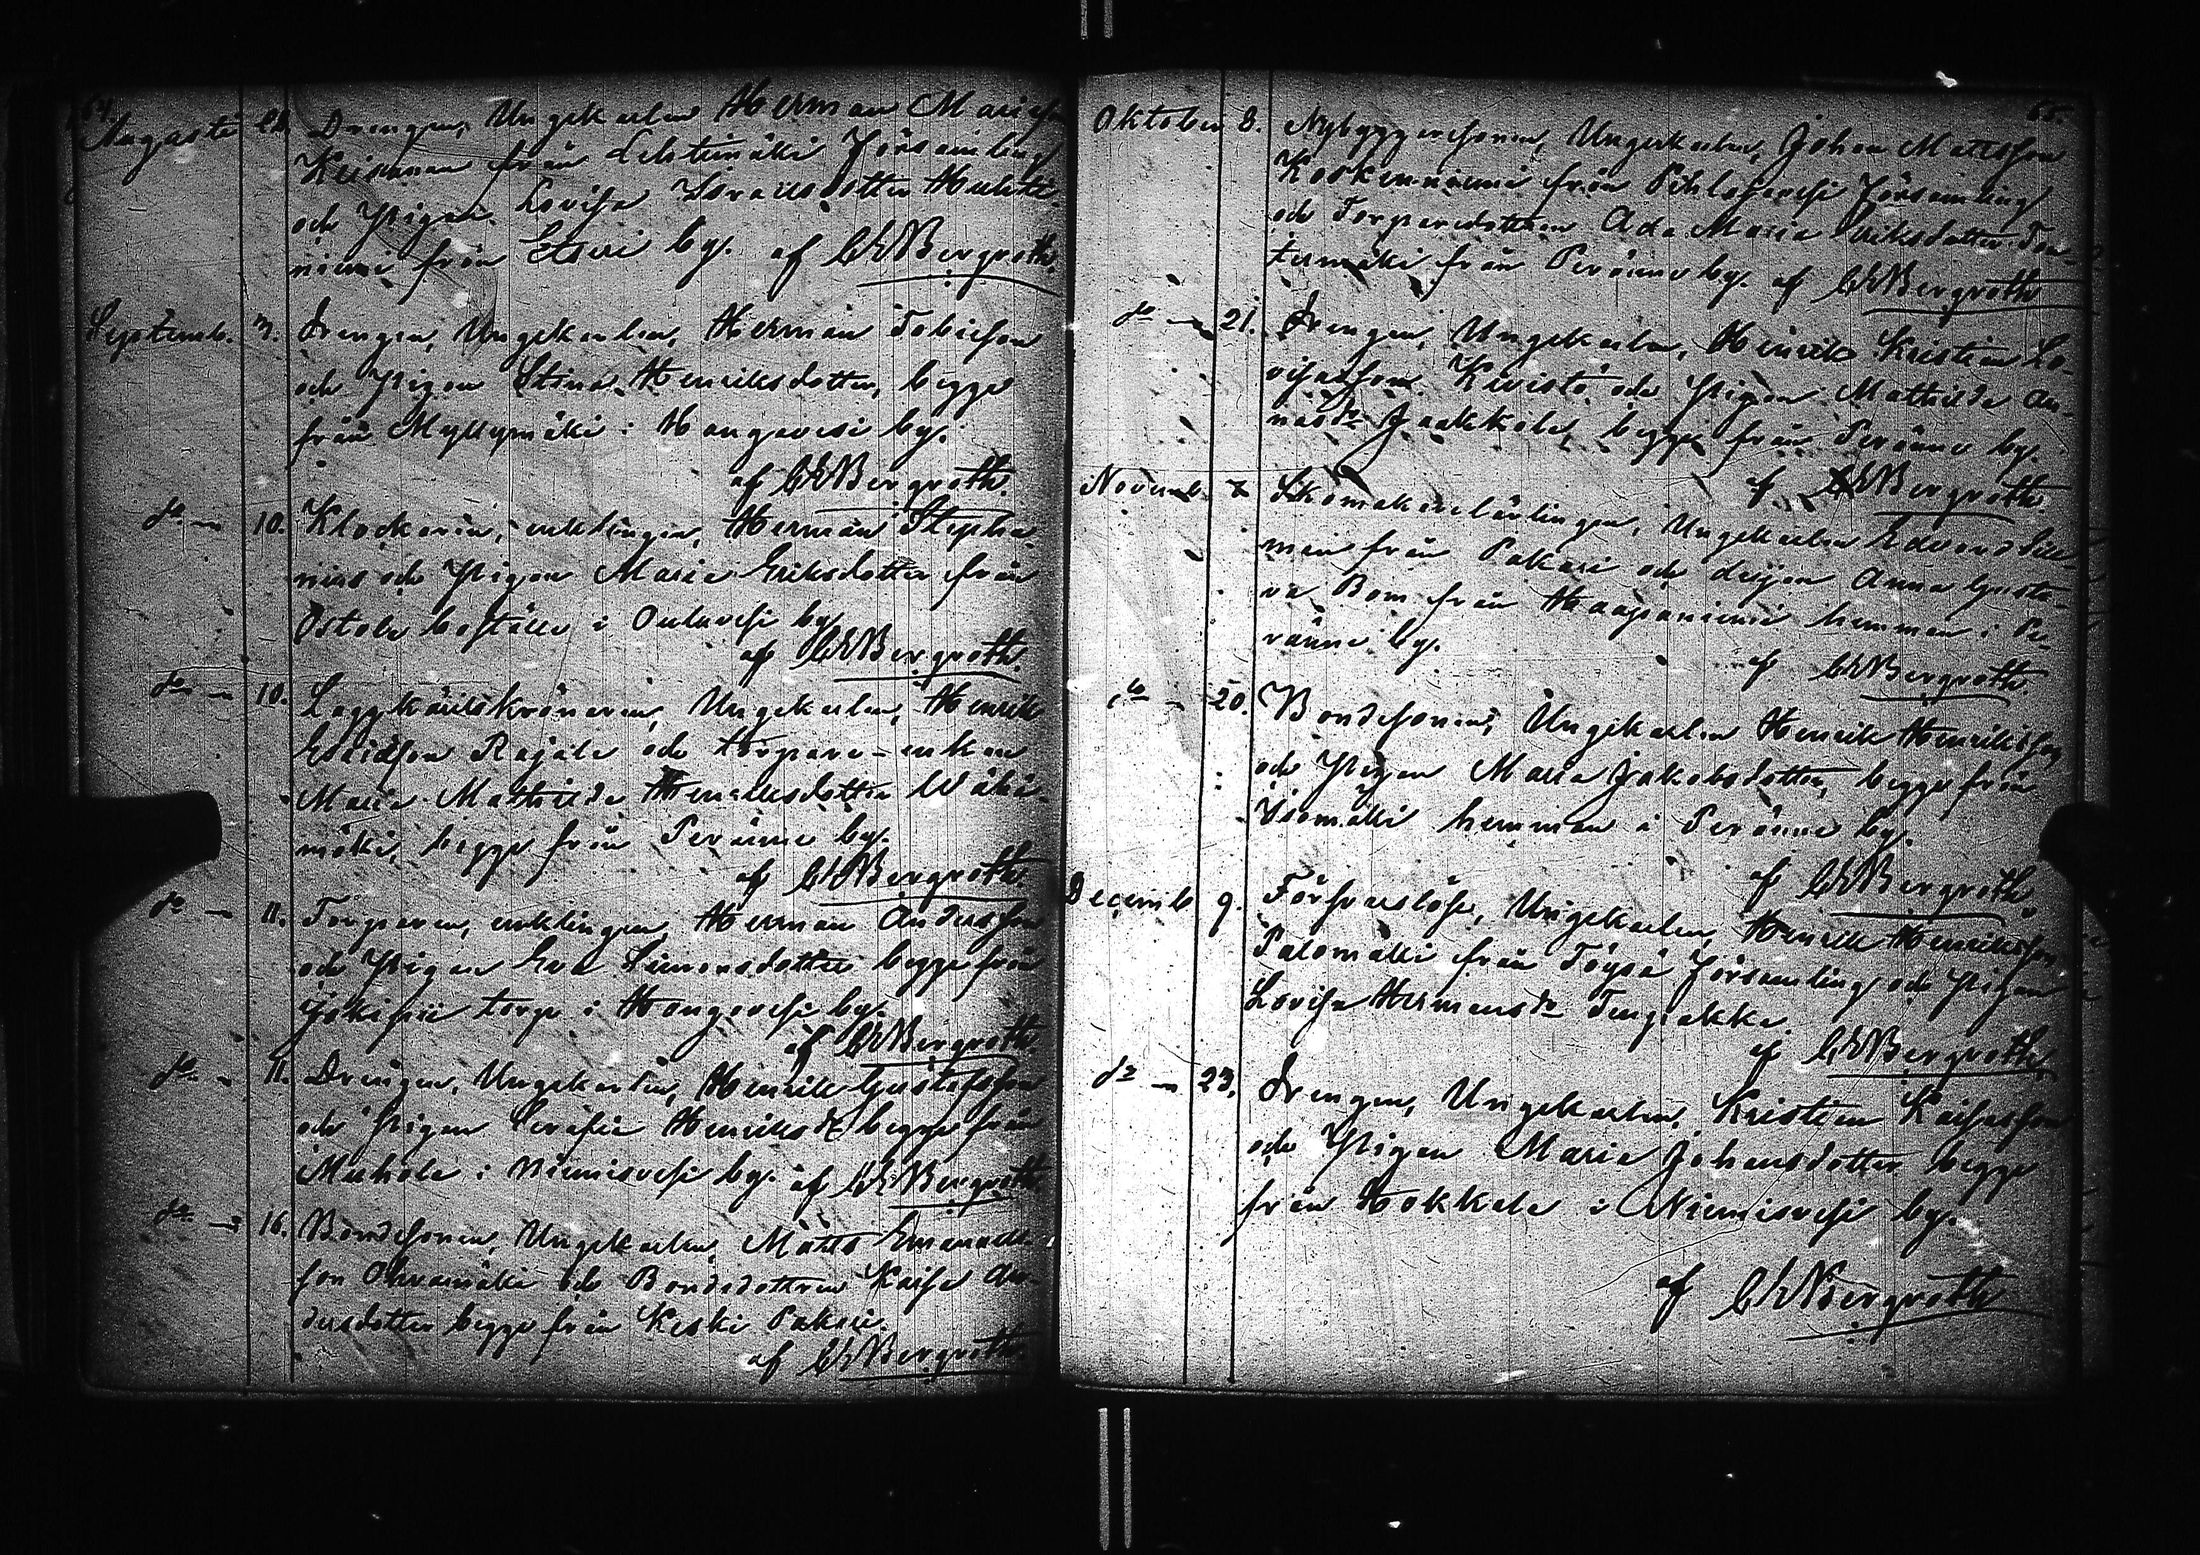 64.
Augusti 21. Drengen, Ungekarlen Herman Mariæson
Keisanen från Lehtimäki Församling
och Pigan Lovisa Israelsdotter Huhta-
niemi från Etseri by. af CENBergroth.
Septemb. 3. Drengen, Ungekarlen, Herman Tobiæson
och Pigan Stina Henriksdotter, begge
från Myllymäki i Hangavesi by.
af CENBergroth.
do — 10. Klockarin, enklingen, Herman Stepha-
nius och Pigan Maria Eriksdotter från
Ostola boställe i Ouluvesi by.
af CENBergroth.
do — 10. Laggkärilskrönaren, Ungekarlen, Henrik
Rajala och torpare-enkan
Maria Mathilda Henriksdotter Wäli-
mäki, begge från Peränne by.
af CENBergroth.
do — 11. Torparen, enklingen, Herman Andersson
och Pigan Eva Simonsdotter begge från
torp i Hangavesi by.
af CENBergroth.
do — 11. Drengen, Ungekarlen, Henrik Gustafsson
och Pigan Serafia Henriksdr begge från
i Niemisvesi by. af CENBergroth.
do — 16. Bondesonen, Ungekarlen, Matts Emanuels-
son och Bondedottren Kaisa An-
dersdotter begge från Keski Pakari.
af CENBergroth.
65.
Oktober 8. Nybyggaresonen, Ungekarlen, Johan Mattsson
Koskenniemi från Pihlajavesi Församling
och Torparedottren Ada Maria Eriksdotter
från Peränne by. af CENBergroth
do — 21. Drengen, Ungekarlen, Henrik Kristian Lo-
visason Kivistö och Pigan Mathilda An-
nasdr Jaakkola, begge från Peränne by.
af CENBergroth.
Novemb. 7 Skomakarelärlingen, Ungekarlen Edvard
från Pakari och Anna Gusta-
va Bom från Haapaniemi hemman i Pe-
ränne by.
af CENBergroth.
do — 20. Bondesonen, Ungekarlen Henrik Henriksson
och Pigan Maria Jakobsdotter, begge från
Isomäki hemman i Peränne by.
af CENBergroth.
Decemb 9. Försvarslöse, Ungekarlen, Henrik Henriksson
Palomäki från Töysä Församling och Pigan
Lovisa Hermansdr
af CENBergroth.
do — 23. Drengen, Ungekarlen, Kristian Kaisasson
och Pigan Maria Johansdotter begge
från Hokkala i Niemisvesi by.
af CENBergroth